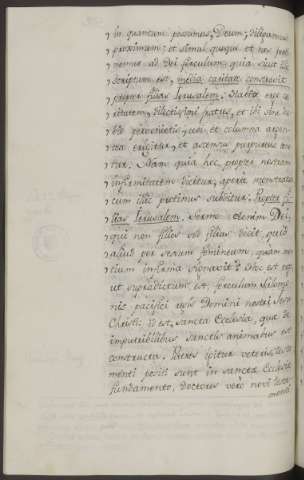 in quantum possumus, Deum; diligamus
proximum; et simul quoque et nos pre-
memus ad dei ferculum quia sicut illic
scriptum est, media caritate constravit
propter filias Ierusalem: Habete ergo ca-
ritatem, dilectissimi fratres, et ibi sine du-
bio pervenietis, ubi et columna argen-
tea erigitur, et ascensus purpureus tene-
tur: Nam quia hec, propter nostram
infirmitatem dicitur, aperte monstratur
cum illic protinus subditur: Propter fi-
lias Ierusalem. Sermo etenim Dei,
qui non filios sed filias dicit quid
aliud per sexum femineum, quam men-
tium infirma signavit? Hoc est ergo
ut supradictum est, ferculum Salomo-
nis pacifici regis Domini nostri Jesu
Christi id est, Sancta Ecclesia, que de
imputribilibus Sanctis animabus est
constructa. Patres igitur veteris testa-
menti positi sunt in sancta Ecclesia
fundamento, doctores vero novi testa-
menti